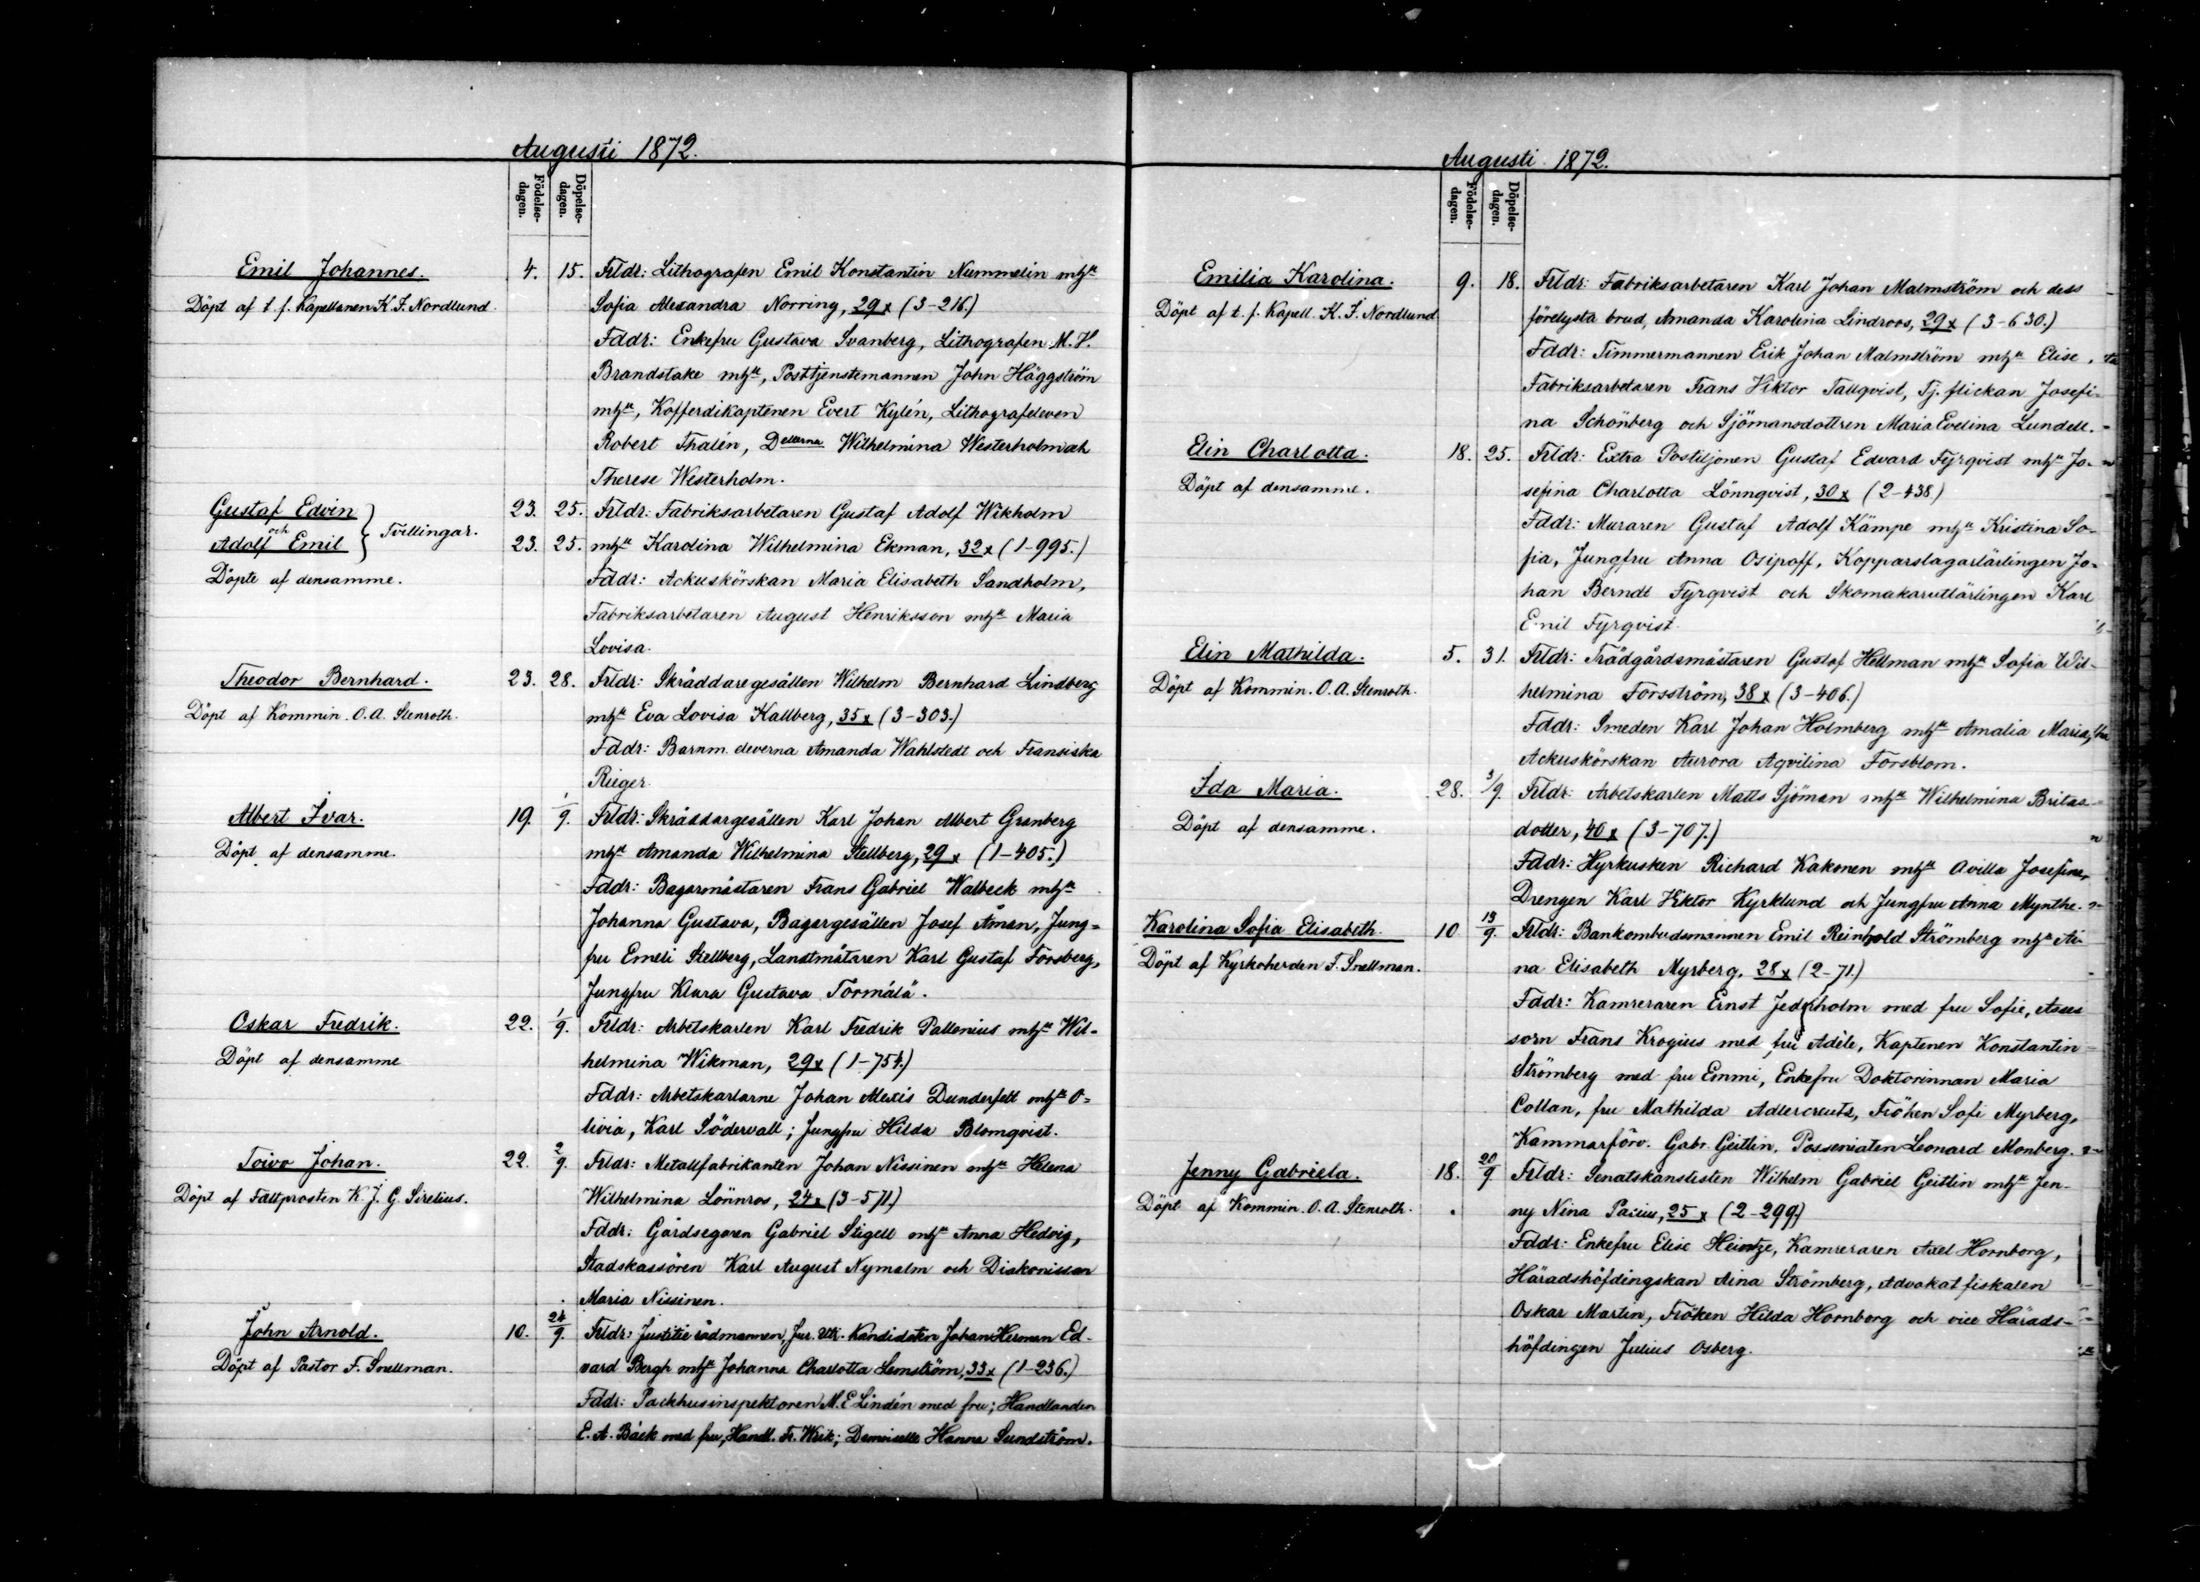 Augusti 1872.
Födelse-dagen.
Döpelse-dagen.
Emil Johannes. 4. 15. Frldr: Lithografen Emil Konstantin Nummelin mhu
Döpt af t. f. Kapellanen K. F. Nordlund. Sofia Alexandra Norring, 29 x (3-216.)
Fddr: Enkefru Gustava Svanberg, Lithografen M. H.
Brandstake mhu, Posttjenstemannen John Häggström
mhu, Kofferdikaptenen Evert Kylén, Lithografeleven
Robert Thalén, Dellarna Wilhelmina Westerholm och
Therese Westerholm.
Gustaf Edvin 23. 25. Frldr: Fabriksarbetaren Gustaf Adolf Wikholm
och Tvillingar.
Adolf Emil 23. 25. mhu Karolina Wilhelmina Ekman, 32 x (1-995.)
Döpte af densamme. Fddr: Ackuskörskan Maria Elisabeth Sandholm,
Fabriksarbetaren August Henriksson mhu Maria
Lovisa.
Theodor Bernhard. 23. 28. Frldr: Skräddaregesällen Wilhelm Bernhard Lindberg
Döpt af Kommin. O. A. Stenroth. mhu Eva Lovisa Kallberg, 35 x (3-303.)
Fddr: Barnm. eleverna Amanda Wahlstedt och Fransiska
Rieger.
Albert Ivar. 19. 1/9. Frldr: Skräddargesällen Karl Johan Albert Granberg
Döpt af densamme. mhu Amanda Wilhelmina Stellberg, 29 x (1-405.)
Fddr: Bagarmästaren Frans Gabriel Walbeck mhu
Johanna Gustava, Bagargesällen Josef Åman, Jung=
fru Emeli Stellberg, Lanstmätaren Karl Gustaf Forsberg,
Jungfru Klara Gustava Törmälä.
Oskar Fredrik. 22. 1/9. Frldr: Arbetskarlen Karl Fredrik Pallonius mhu Wil=
Döpt af densamme helmina Wikman, 29 x (1-754.)
Fddr: Arbetskarlarne Johan Alexis Dunderfelt mhu O=
livia, Karl Södervall; Jungfru Hilda Blomqvist.
Toivo Johan. 22. 2/9. Frldr: Metallfabrikanten Johan Nissinen mhu Helena
Döpt af Fältprosten K. J. G. Sirelius. Wilhelmina Lönnros, 24 x (3-571.)
Fddr: Gårdsegaren Gabriel Stigell mhu Anna Hedvig,
Stadskassören Karl August Nymalm och Diakonissan
Maria Nissinen.
John Arnold. 10. 24/9. Frldr: Justitie rådmannen, Jur. Utr. Kandidaten Johan Herman Ed-
Döpt af Pastor F. Snellman. vard Bergh mhu Johanna Charlotta Lemström, 33 x (1-236.)
Fddr: Packhusinspektoren M. E. Lindén med fru; Handlanden
E. A. Bäck med fru, Handl. Fr. Wiik; Demoiselle Hanna Sundström.
Augusti 1872.
Födelse-dagen.
Döpelse-dagen.
Emilia Karolina. 9. 18. Frldr: Fabriksarbetaren Karl Johan Malmström och dess
Döpt af t. f. Kapell. K. F. Nordlund förelysta brud, Amanda Karolina Lindroos, 29 x (3-630.)
Fddr: Timmermannen Erik Johan Malmström mhu Elise,
Fabriksarbetaren Frans Viktor Tallqvist, Tj. flickan Josefi-
na Schönberg och Sjömansdottren Maria Evelina Lundell.
Elin Charlotta. 18. 25. Frldr: Extra Postiljonen Gustaf Edvard Fyrqvist mhu Jo-
Döpt af densamme. sefina Charlotta Lönnqvist, 30 x (2-438)
Fddr: Muraren Gustaf Adolf Kämpe mhu Kristina So-
fia, Jungfru Anna Osipoff, Kopparslagarlärlingen Jo-
han Berndt Fyrqvist och Skomakarutlärlingen Karl
Emil Fyrqvist.
Elin Mathilda. 5. 31. Frldr: Trädgårdsmästaren Gustaf Hellman mhu Sofia Wil-
Döpt af Kommin. O. A. Stenroth. helmina Forsström, 38 x (3-406.)
Fddr: Smeden Karl Johan Holmberg mhu Amalia Maria,
Ackuskörskan Aurora Aqvilina Forsblom.
Ida Maria. 28. 3/9. Frldr: Arbetskarlen Matts Sjöman mhu Wilhelmina Britas
Döpt af densamme. dotter, 40 x (3-707.)
Fddr: Hyrkusken Richard Kakonen mhu Avilla Josefina,
Drengen Karl Viktor Kyrklund och Jungfru Anna Mynthe.
Karolina Sofia Elisabeth. 10 13/9. Frldr: Bankombudsmannen Emil Reinhold Strömberg mhu Ai-
Döpt af Kyrkoherden F. Snellman. na Elisabeth Myrberg, 28 x (2-71.)
Fddr: Kamreraren Ernst Jedeholm med fru Sofie, Asses
sorn Frans Krogius med fru Adèle, Kaptenen Konstantin
Strömberg med fru Emmi, Enkefru Doktorinnan Maria
Collan, fru Mathilda Adlercreutz, Fröken Sofi Myrberg,
Kammarförv. Gabr. Geitlin, Possessiaten Leonard Monberg.
Jenny Gabriela. 18. 20/9 Frldr: Senatskanslisten Wilhelm Gabriel Geitlin mhu Jen-
Döpt af Kommin. O. A. Stenroth. ny Nina Pacius, 25 x (2-299.)
Fddr: Enkefru Elise Heintze, Kamreraren Axel Hornborg,
Häradshöfdingskan Aina Strömberg, Advokatfiskalen
Oskar Martin, Fröken Hilda Hornborg och vice Härads-
höfdingen Julius Osberg.